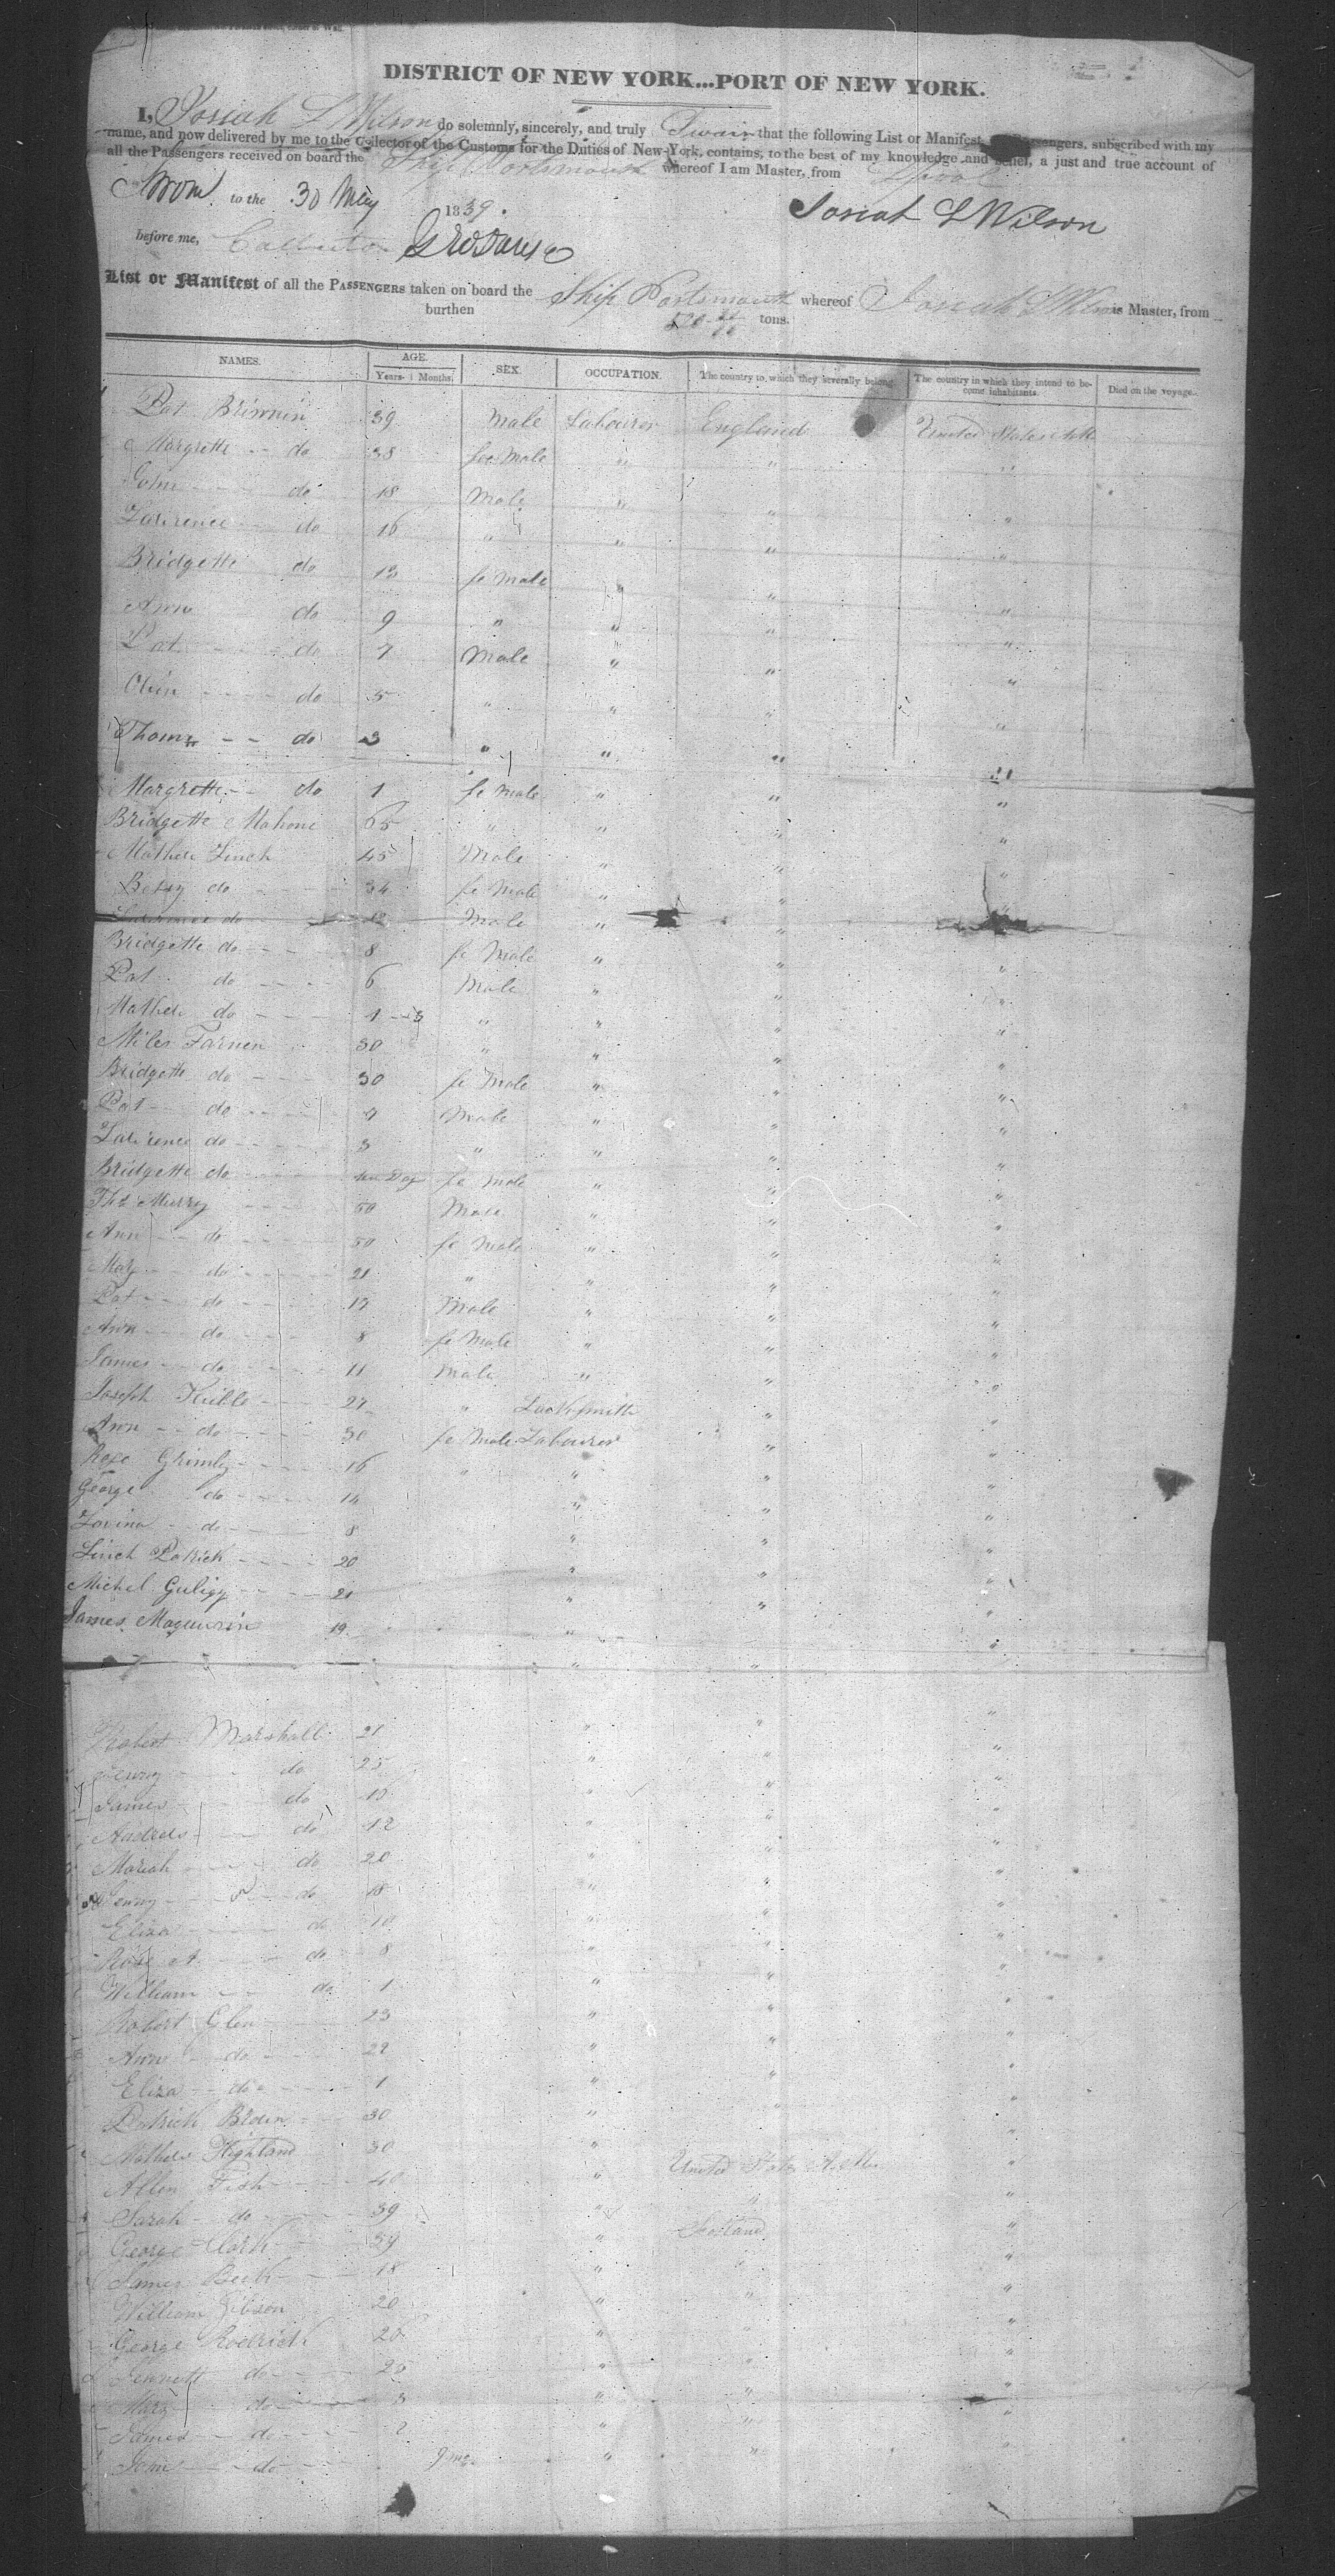 DISTRICT OF NEW YORK...PORT OF NEW YORK.
I, Josiah L Wilson do solemnly, sincerely, and truly Swear that the following List or Manifest Passengers, subscribed with my
name, and now delivered by me to the Collector of the Customs for the Duties of New-York, contains, to the best of my knowledge and belief, a just and true account of
all the Passengers received on board the Ship Portsmouth whereof I am Master, from Lpool
Sworn to the 30 May 1839. Josiah L Wilson
before me,
List or Manifest of all the PASSENGERS taken on board the Ship Portsmouth whereof Josiah L Wilson is Master, from
burthen 520 tons.
NAMES. AGE. SEX. OCCUPATION. The country to which they severally belong. The country in which they intend to become inhabitants. Died on the voyage.
Years Months.
Pat Brinnin 39 Male Labourer England United States
Margrette do 38 fe Male " " "
John do 18 Male " " "
Lawrence do 16 " " " "
Bridgette do 13 fe Male " " "
Ann do 9 " " " "
Pat do 7 Male " " "
Oliin do 5 " " " "
Thoms do 3 " " " "
Margrette do 1 fe Male " " "
Bridgette Mahone 65 " " " "
Mathew Linch 45 Male " " "
Betsy do 34 fe Male " " "
Lawrence do 12 Male " " "
Bridgette do 8 fe Male " " "
Pat do 6 Male " " "
Mathew do 1 3 " " " "
Miles Farnen 30 " " " "
Bridgette do 30 fe Male " " "
Pat do Male " " "
Lawrence do 3 " " " "
Bridgette do ten Day fe Male " " "
Ths Murry 50 Male " " "
Ann do 50 fe Male " " "
May do 21 " " " "
Pat do 17 Male " " "
Ann do 8 fe Male " " "
James do 11 Male " " "
Joseph Kibble 27 " Lock smith " "
Ann do 30 fe Male Labourer " "
Rose Grimley 16 " " " "
George do 14 " " "
Lovina do 8 " " "
Linch Patrick 20 " " "
Michel Guligy 21 " " "
James Maguurin 19 " " "
Robert Marshall 21 " " "
Henry do 25 " " "
James do 15 " " "
Andrew do 12 " " "
Mariah do 20 " " "
Jenny do 18 " " "
Eliza do 10 " " "
Rose A do 8 " " "
William do 1 " " "
Robert Glen 23 " " "
Ann do 22 " " "
Eliza do 1 " " "
Patrick Brown 30 " " "
Mathew Highland 30 " " "
Allen Fish 40 " United States "
Sarah do 39 " " "
George Clark 39 " Scotland "
James Beck 18 " " "
William Gibson 20 " " "
George Rodrick 20 " " "
Jennett do 25 " " "
Mary do 3 " " "
James do 2 " " "
do 9 mo " "